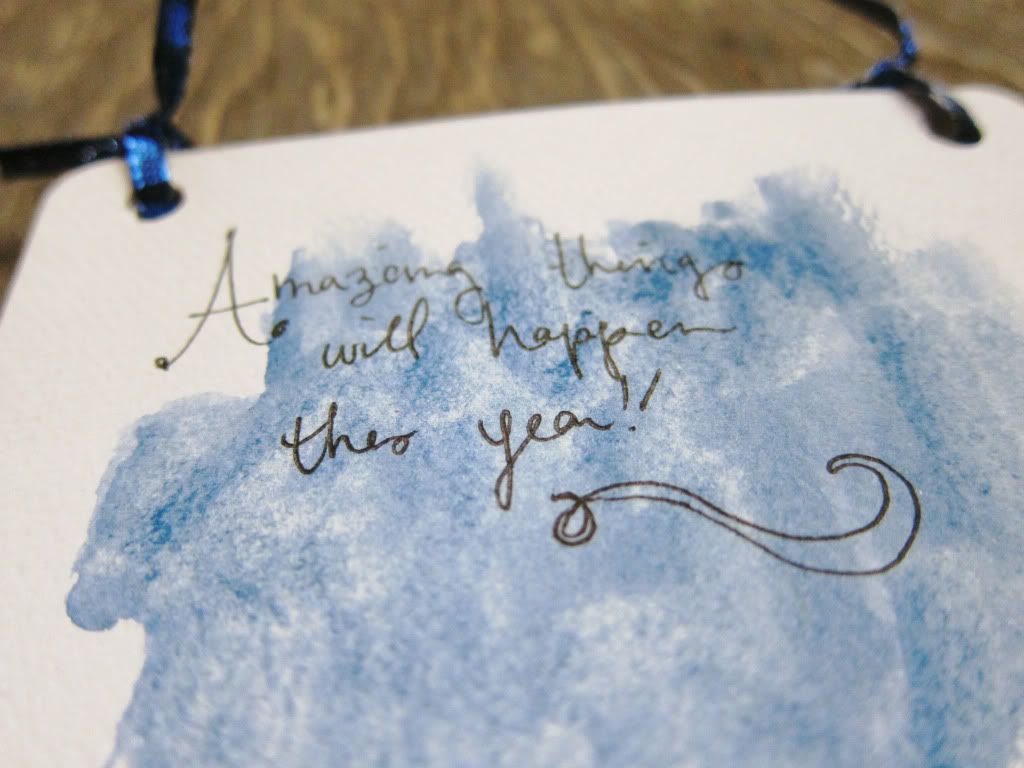 Amazing things
will happen
this year!!